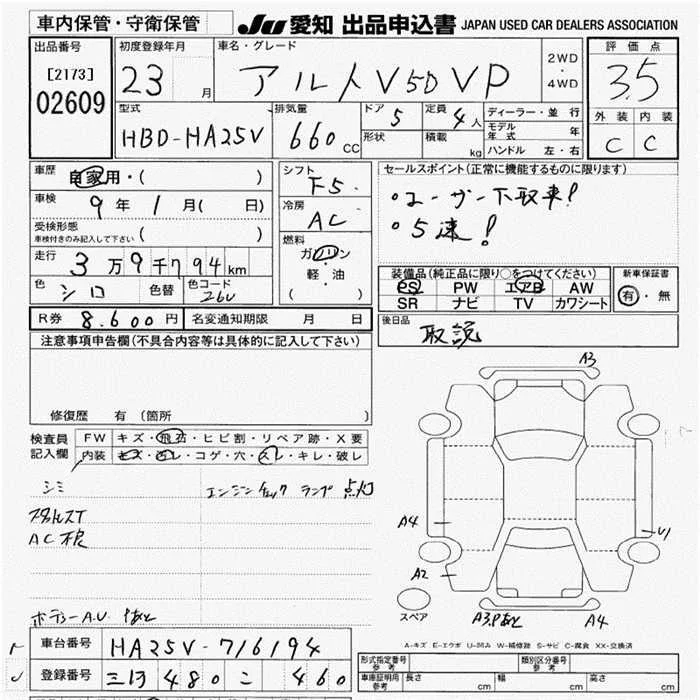 車内保管・守衛保管
JU 愛知 出品申込書 JAPAN USED CAR DEALERS ASSOCIATION
出品番号
[2173]
02609
初度登録年月
23 月
車名・グレード
アルト V 5D VP
2WD
・
4WD
評価点
3.5
外装 内装
C C
型式
HBD-HA25V
排気量
660 CC
ドア 5
定員 4 人
形状
積載 kg
ディーラー・並行
モデル年式 年
ハンドル 左・右
車歴
自家用・( )
車検
9 年 1 月( 日)
受検形態
車検付きのみ記入して下さい ( )
走行
3 万 9 千 794 km
色 シロ 色替 色コード 26U
シフト
F5
冷房
AC
燃料
ガソリン
軽・油
( )
セールスポイント(正常に機能するものに限ります)
・ユーザー下取車!
・5速!
装備品(純正品に限り○をつけてください)
PS PW エアB AW
SR ナビ TV カワシート
新車保証書
有・無
R券 8,600 円 名変通知期限 月 日
後日品
取説
注意事項申告欄(不具合内容等は具体的に記入して下さい)
修復歴 有 (箇所 )
検査員
記入欄
FW キズ・飛石・ヒビ割・リペア跡・X要
内装 キズ・汚レ・コゲ・穴・スレ・キレ・破レ
シミ エンジンチェックランプ点灯
スタッドレスT
AC不良
ボディーA.U Pあと
車台番号 HA25V-716194
登録番号 三河 480 こ 460
A3
A4
U1
A2
スペア
A3,Pあと A4
A-キズ E-エクボ U-凹み W-補修跡 S-サビ C-腐食 XX-交換済
形式指定番号 参考 類別区分番号 参考
車庫証明用 参考 長さ cm 幅 cm 高さ cm